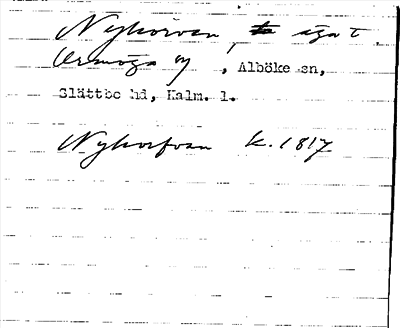 Nyhorvan, äga t.
Ormöga by, Alböke sn,
Slättbo hd, Kalm. l.
Nyhorfvan k. 1817